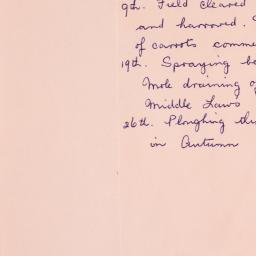 9th. Field cleared
and harrowed.
of carrots comme
19th. Spraying be
Mole draining o
Middle Laws
26th. Ploughing thi
in Autumn